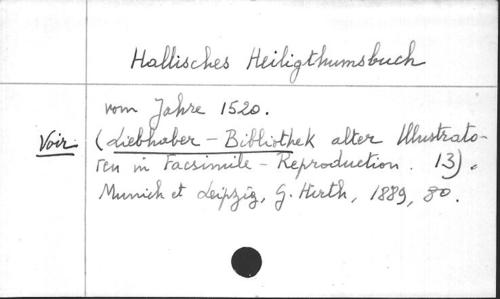 Hallisches Heiligthumsbuch
vom Jahre 1520.
Voir (Liebhaber - Bibliothek alter Illustrato-
ren in Facsimile - Reproduction. 13).
Munich et Leipzig, G. Hirth, 1889, 8o.